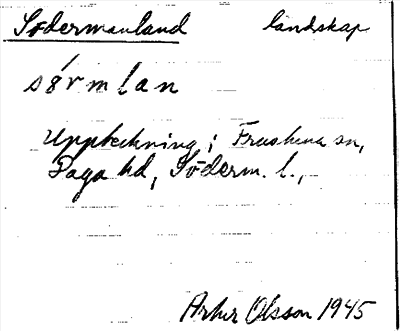 Södermanland landskap
sørmlan
Uppteckning i Frustuna sn,
Daga hd, Söderm. l.,
Artur Olsson 1945